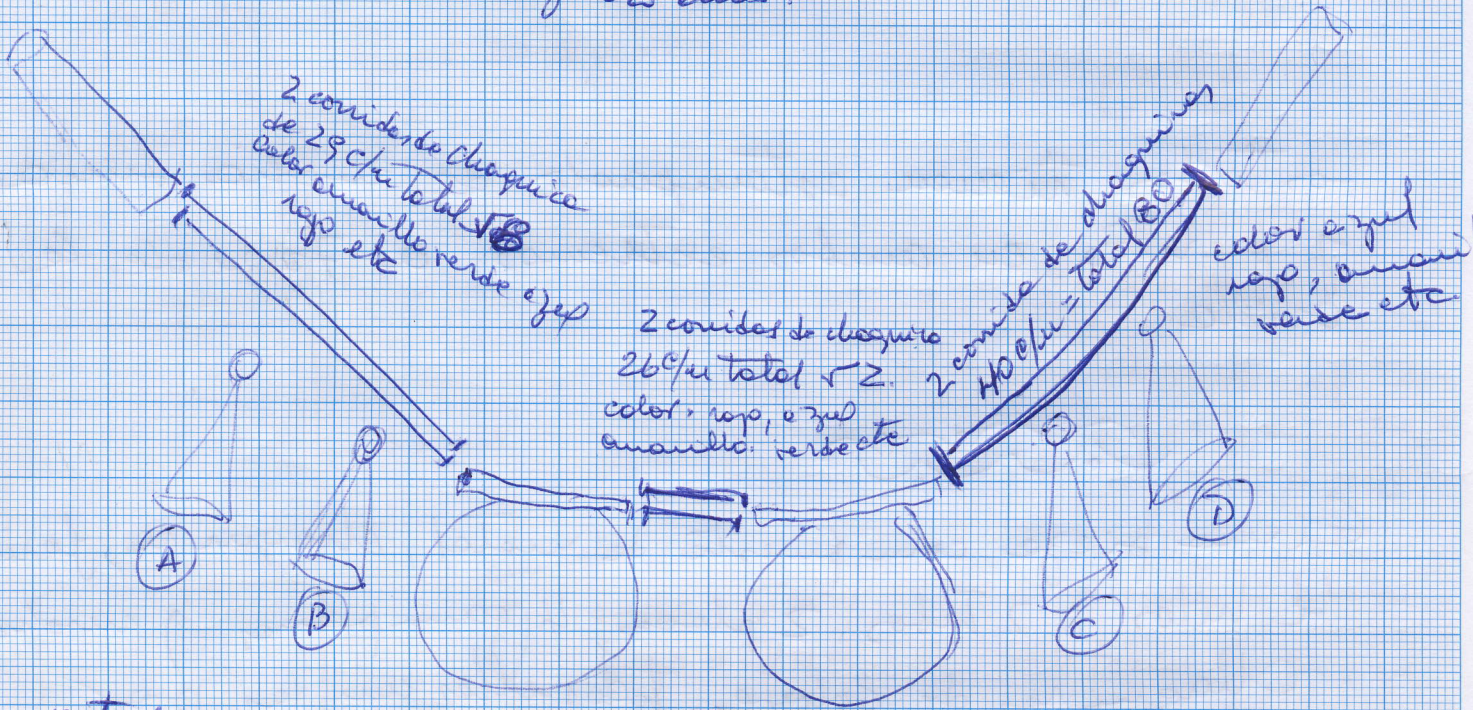 2 corridas de chaquira
de 29 c/u total 58
color amarillo verde azul
rojo etc
2 corridas de chaquira
26 c/u total 52.
color. rojo, azul
amarillo. verde etc
2 corrida de chaquiras
40 c/u = total 80
color azul
rojo, amari
verde etc.
A
B
C
D